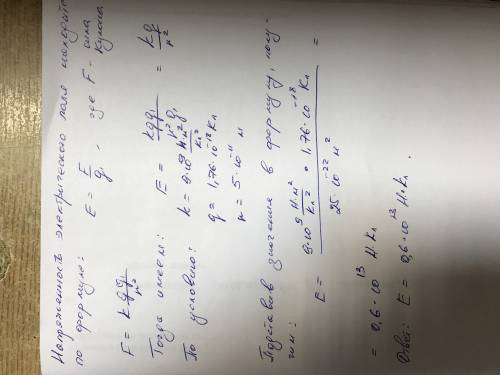 Напряженность электрического поля находится
по формуле:
E = F/q₁, где F - сила Кулона
F = k qq₁/r²
Тогда имеем: E = kqq₁/r²q₁ = kq/r²
По условию: k = 9·10⁹ Н·м²/Кл²
q = 1,76·10⁻¹⁸ Кл
r = 5·10⁻¹¹ м
Подставив значения в формулу, полу-
чим:
E = 9·10⁹ Н·м²/Кл² · 1,76·10⁻¹⁸ Кл / 25·10⁻²² м² =
= 0,6·10¹³ Н·Кл
Ответ: E = 0,6·10¹³ Н·Кл.